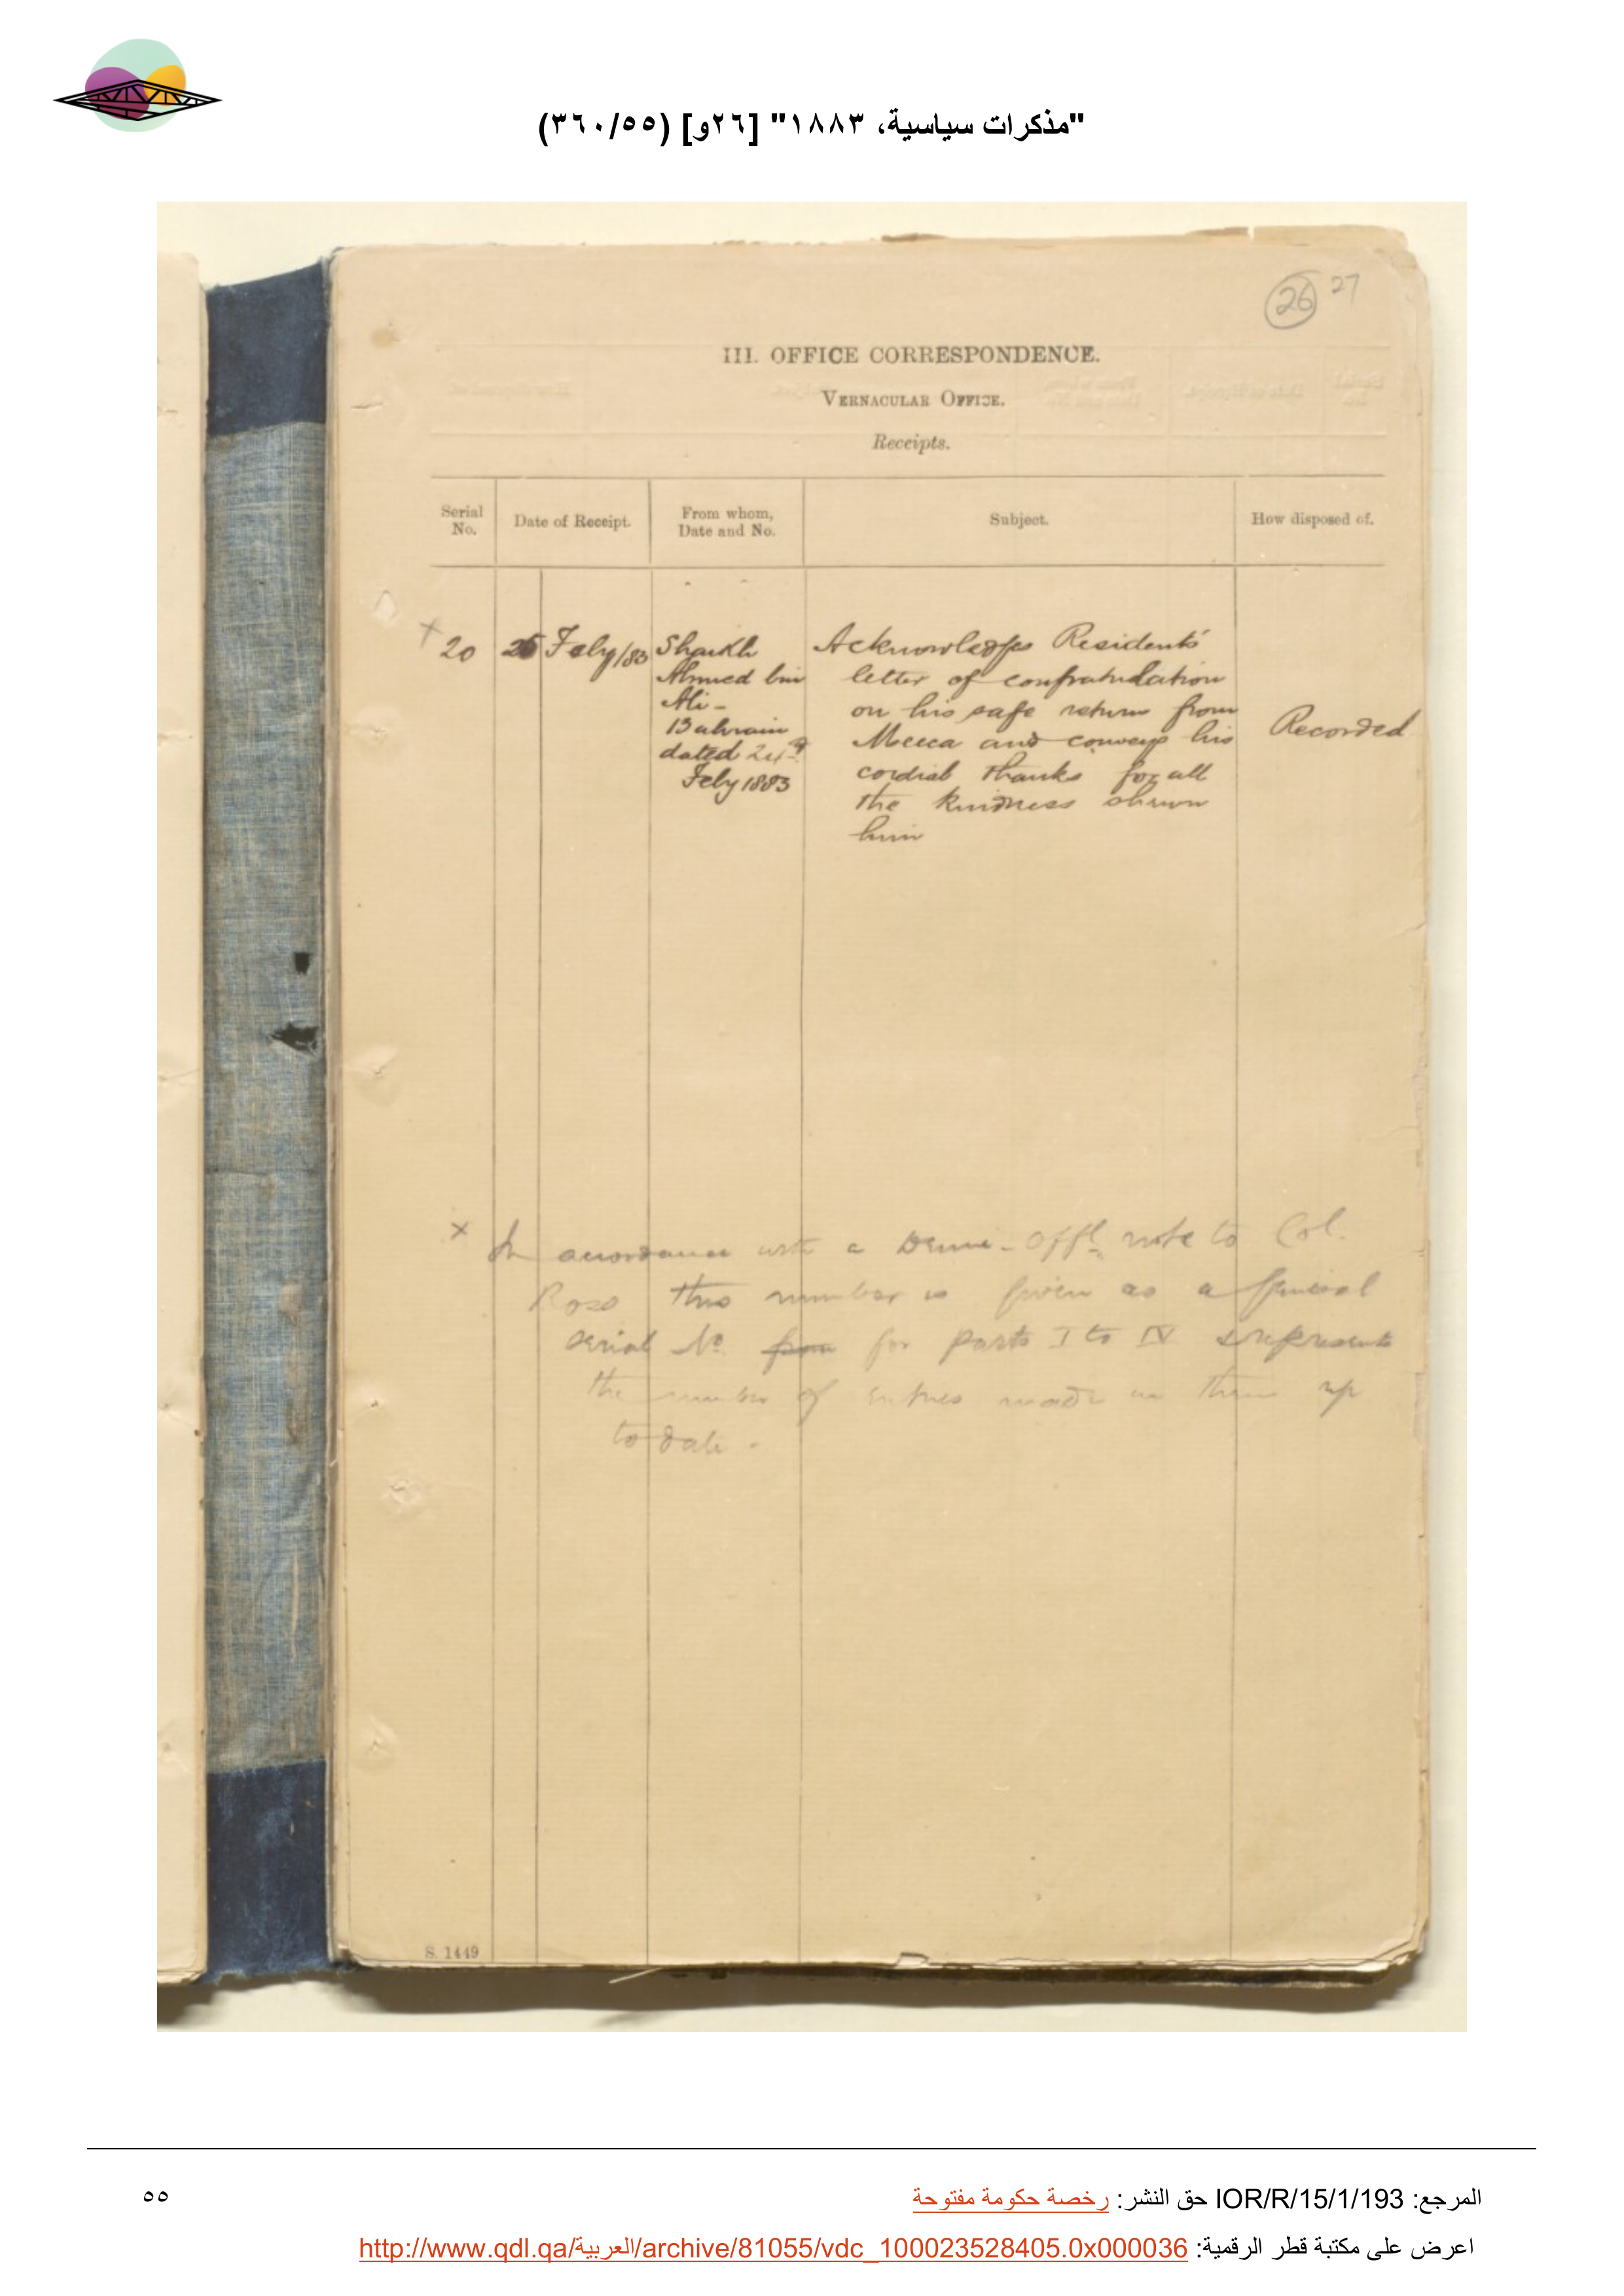 "مذكرات سياسية، ١٨٨٣" [٢٦و] (٣٦٠/٥٥)
26 27
III. OFFICE CORRESPONDENCE.
VERNACULAR OFFICE.
Receipts.
Serial No.
Date of Receipt.
From whom, Date and No.
Subject.
How disposed of.
× 20
26 Feby/83
Shaikh
Ahmed bin
Ali -
Bahrain
dated 24th
Feby 1883
Acknowledges Resident's
letter of congratulation
on his safe return from
Mecca and conveys his
cordial thanks for all
the kindness shewn
him
Recorded
× In accordance with a Demi-Offl. note to Col.
Ross this number is given as a special
serial No. for parts I to IV & represents
the number of entries made in them up
to date -
S. 1449
المرجع: IOR/R/15/1/193 حق النشر: رخصة حكومة مفتوحة
٥٥
اعرض على مكتبة قطر الرقمية: http://www.qdl.qa/العربية/archive/81055/vdc_100023528405.0x000036